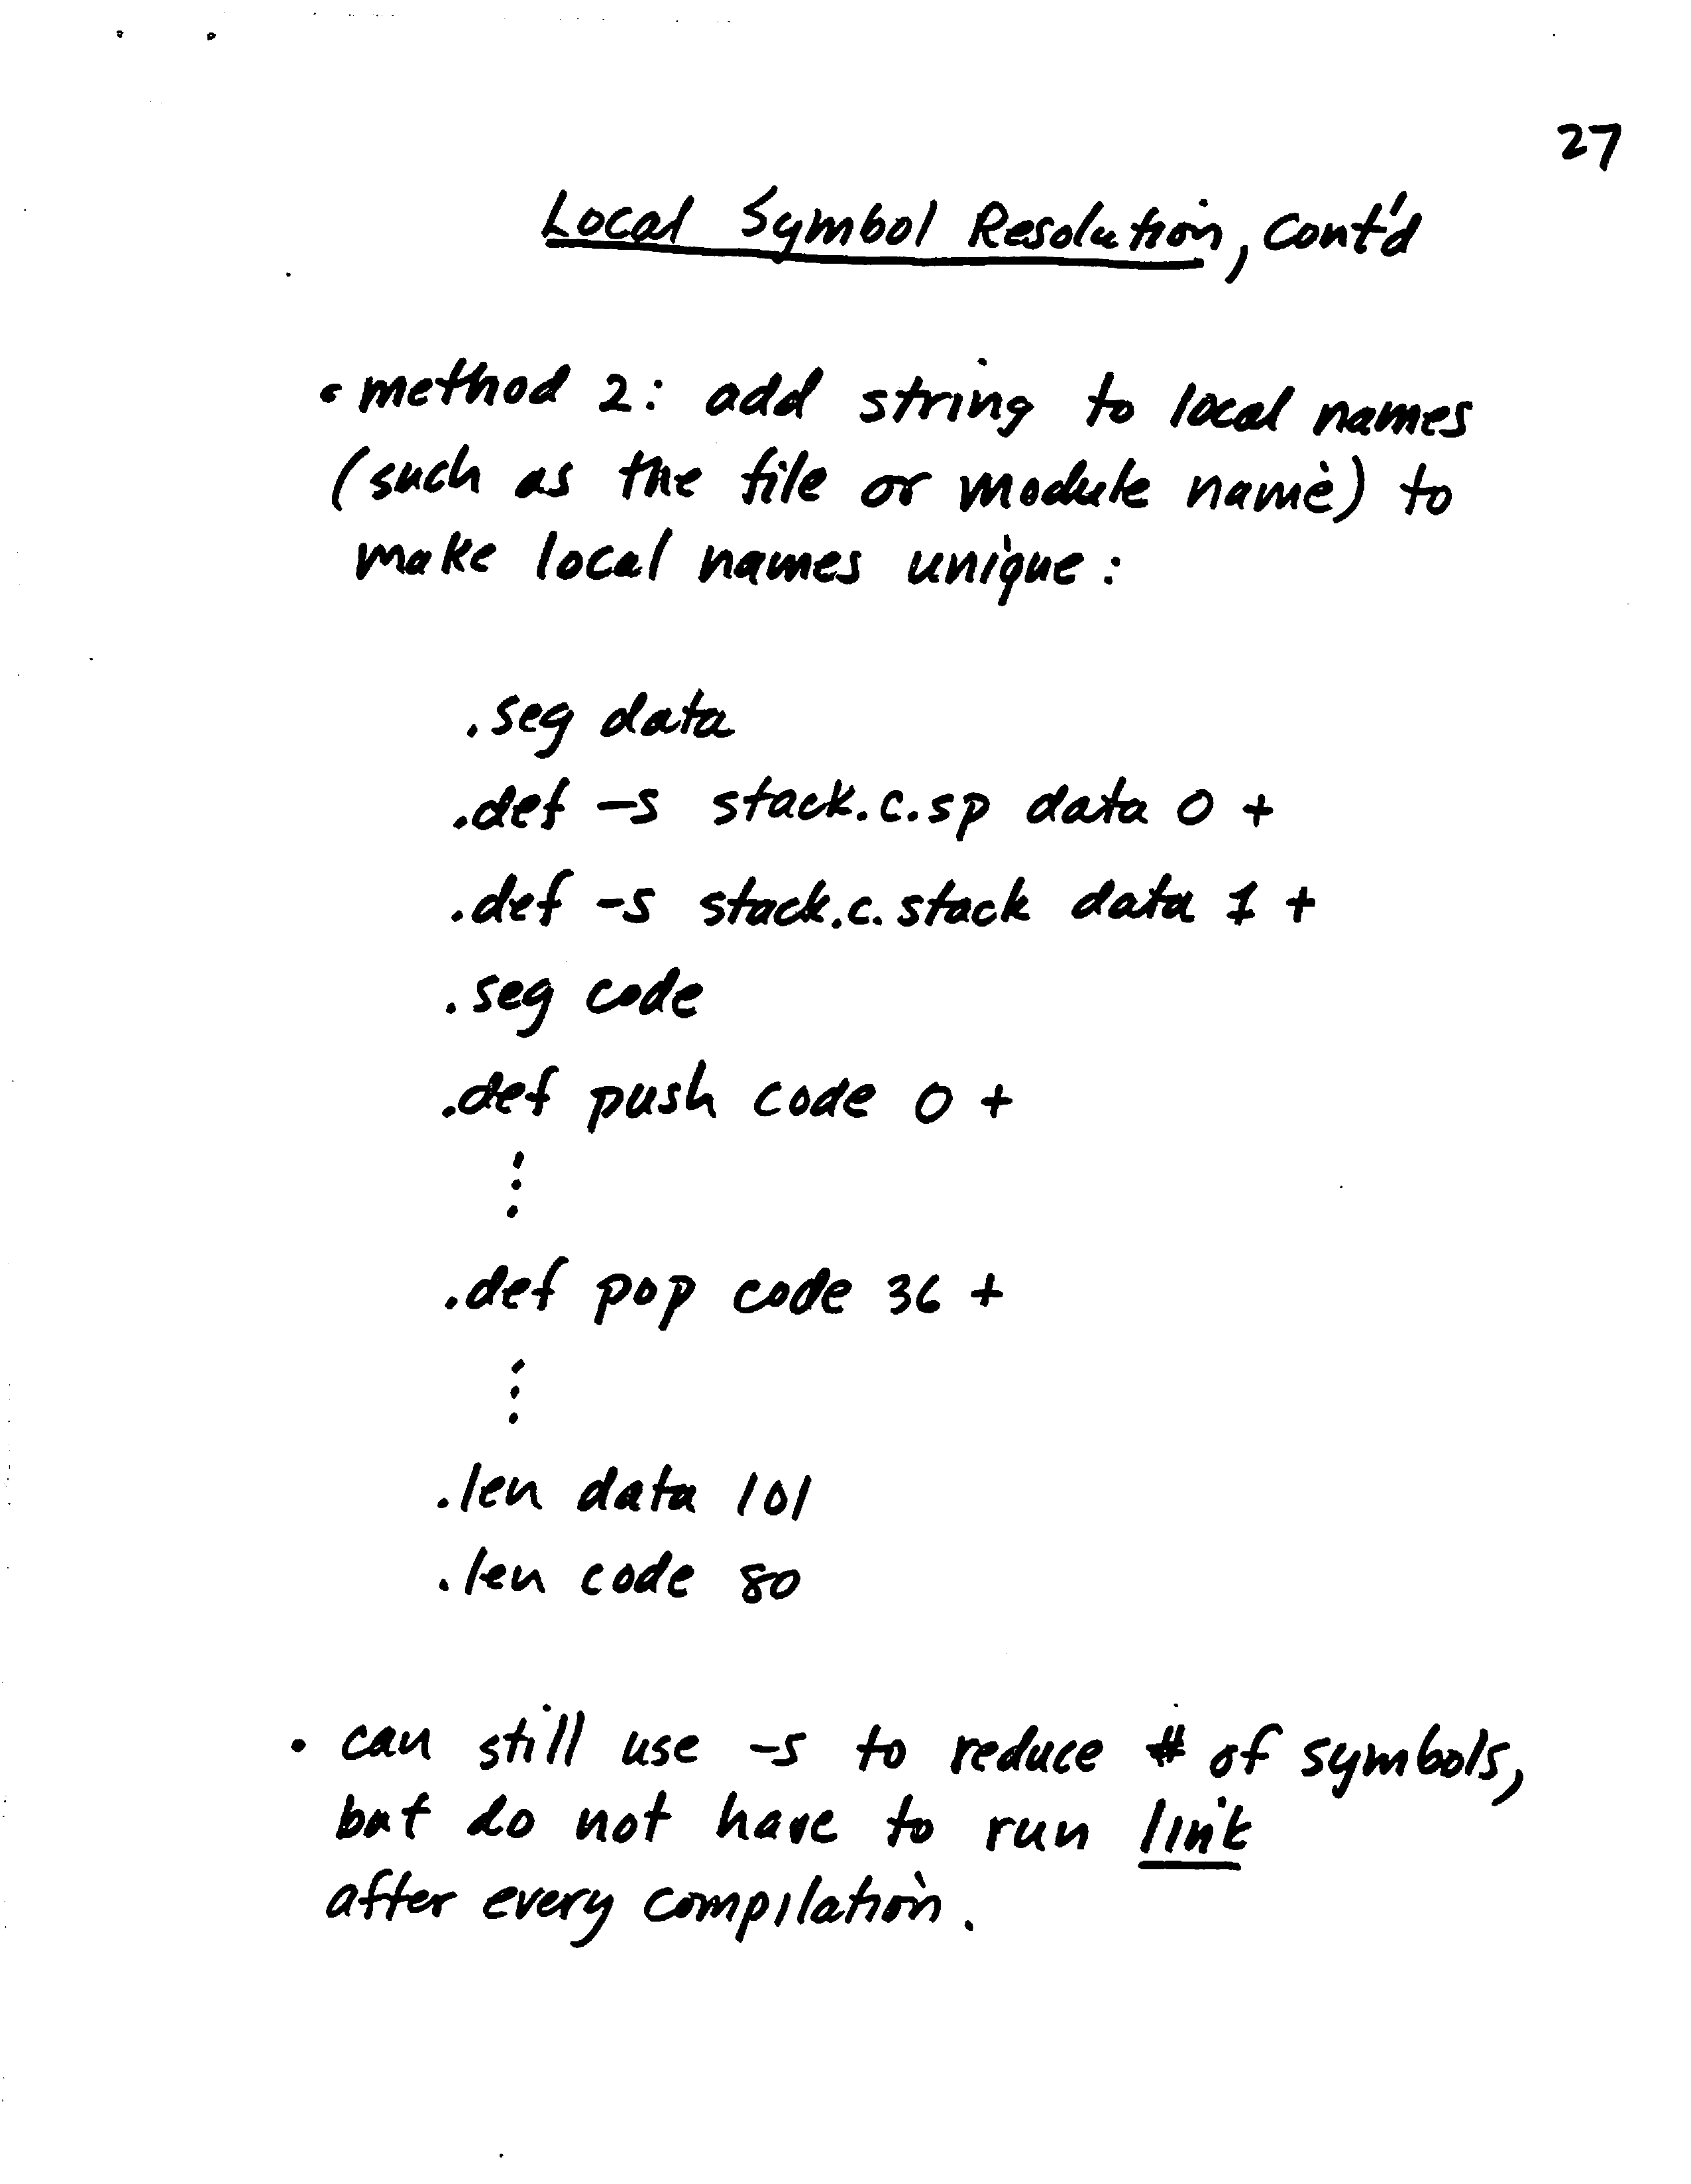 27
Local Symbol Resolution, cont'd
• method 2: add string to local names
(such as the file or module name) to
make local names unique:
.seg data
.def -s stack.c.sp data 0 +
.def -s stack.c.stack data 1 +
.seg code
.def push code 0 +
⋮
.def pop code 36 +
⋮
.len data 101
.len code 80
• can still use -s to reduce # of symbols,
but do not have to run link
after every compilation.